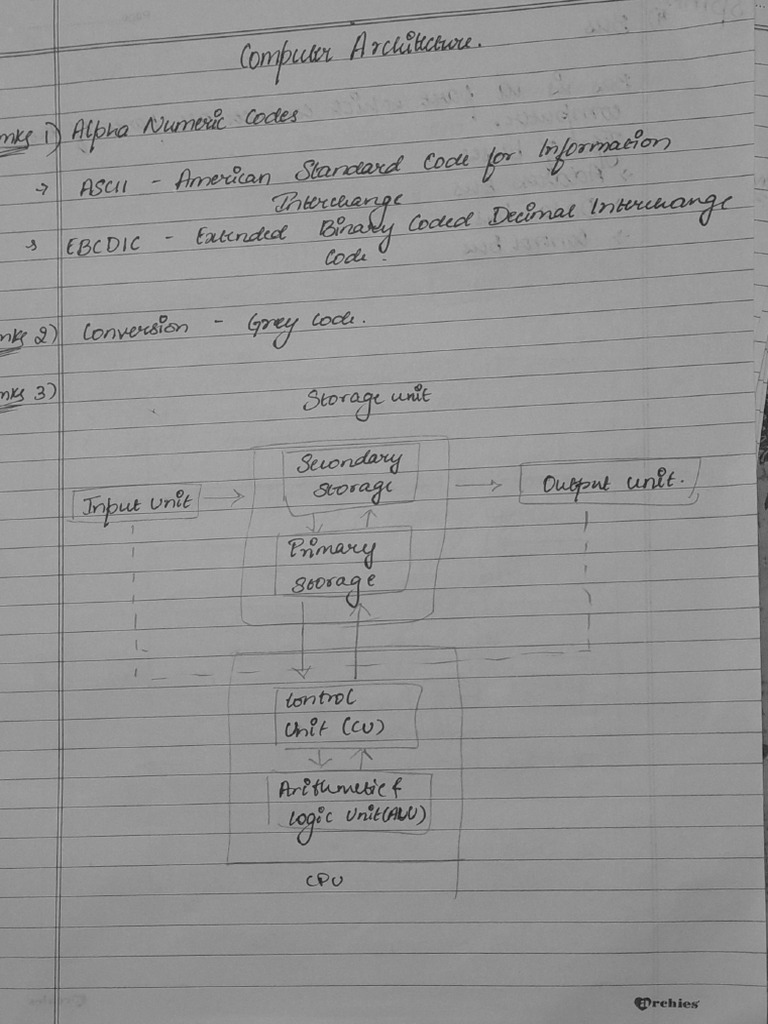 Computer Architecture.
mks 1) Alpha Numeric Codes
→ ASCII - American Standard Code for Information
Interchange
→ EBCDIC - Extended Binary Coded Decimal Interchange
Code.
mks 2) Conversion - Grey Code.
mks 3)
Storage unit
Secondary
Storage
Input Unit
Output Unit.
Primary
Storage
Control
Unit (CU)
Arithmetic &
Logic Unit (ALU)
CPU
Archies